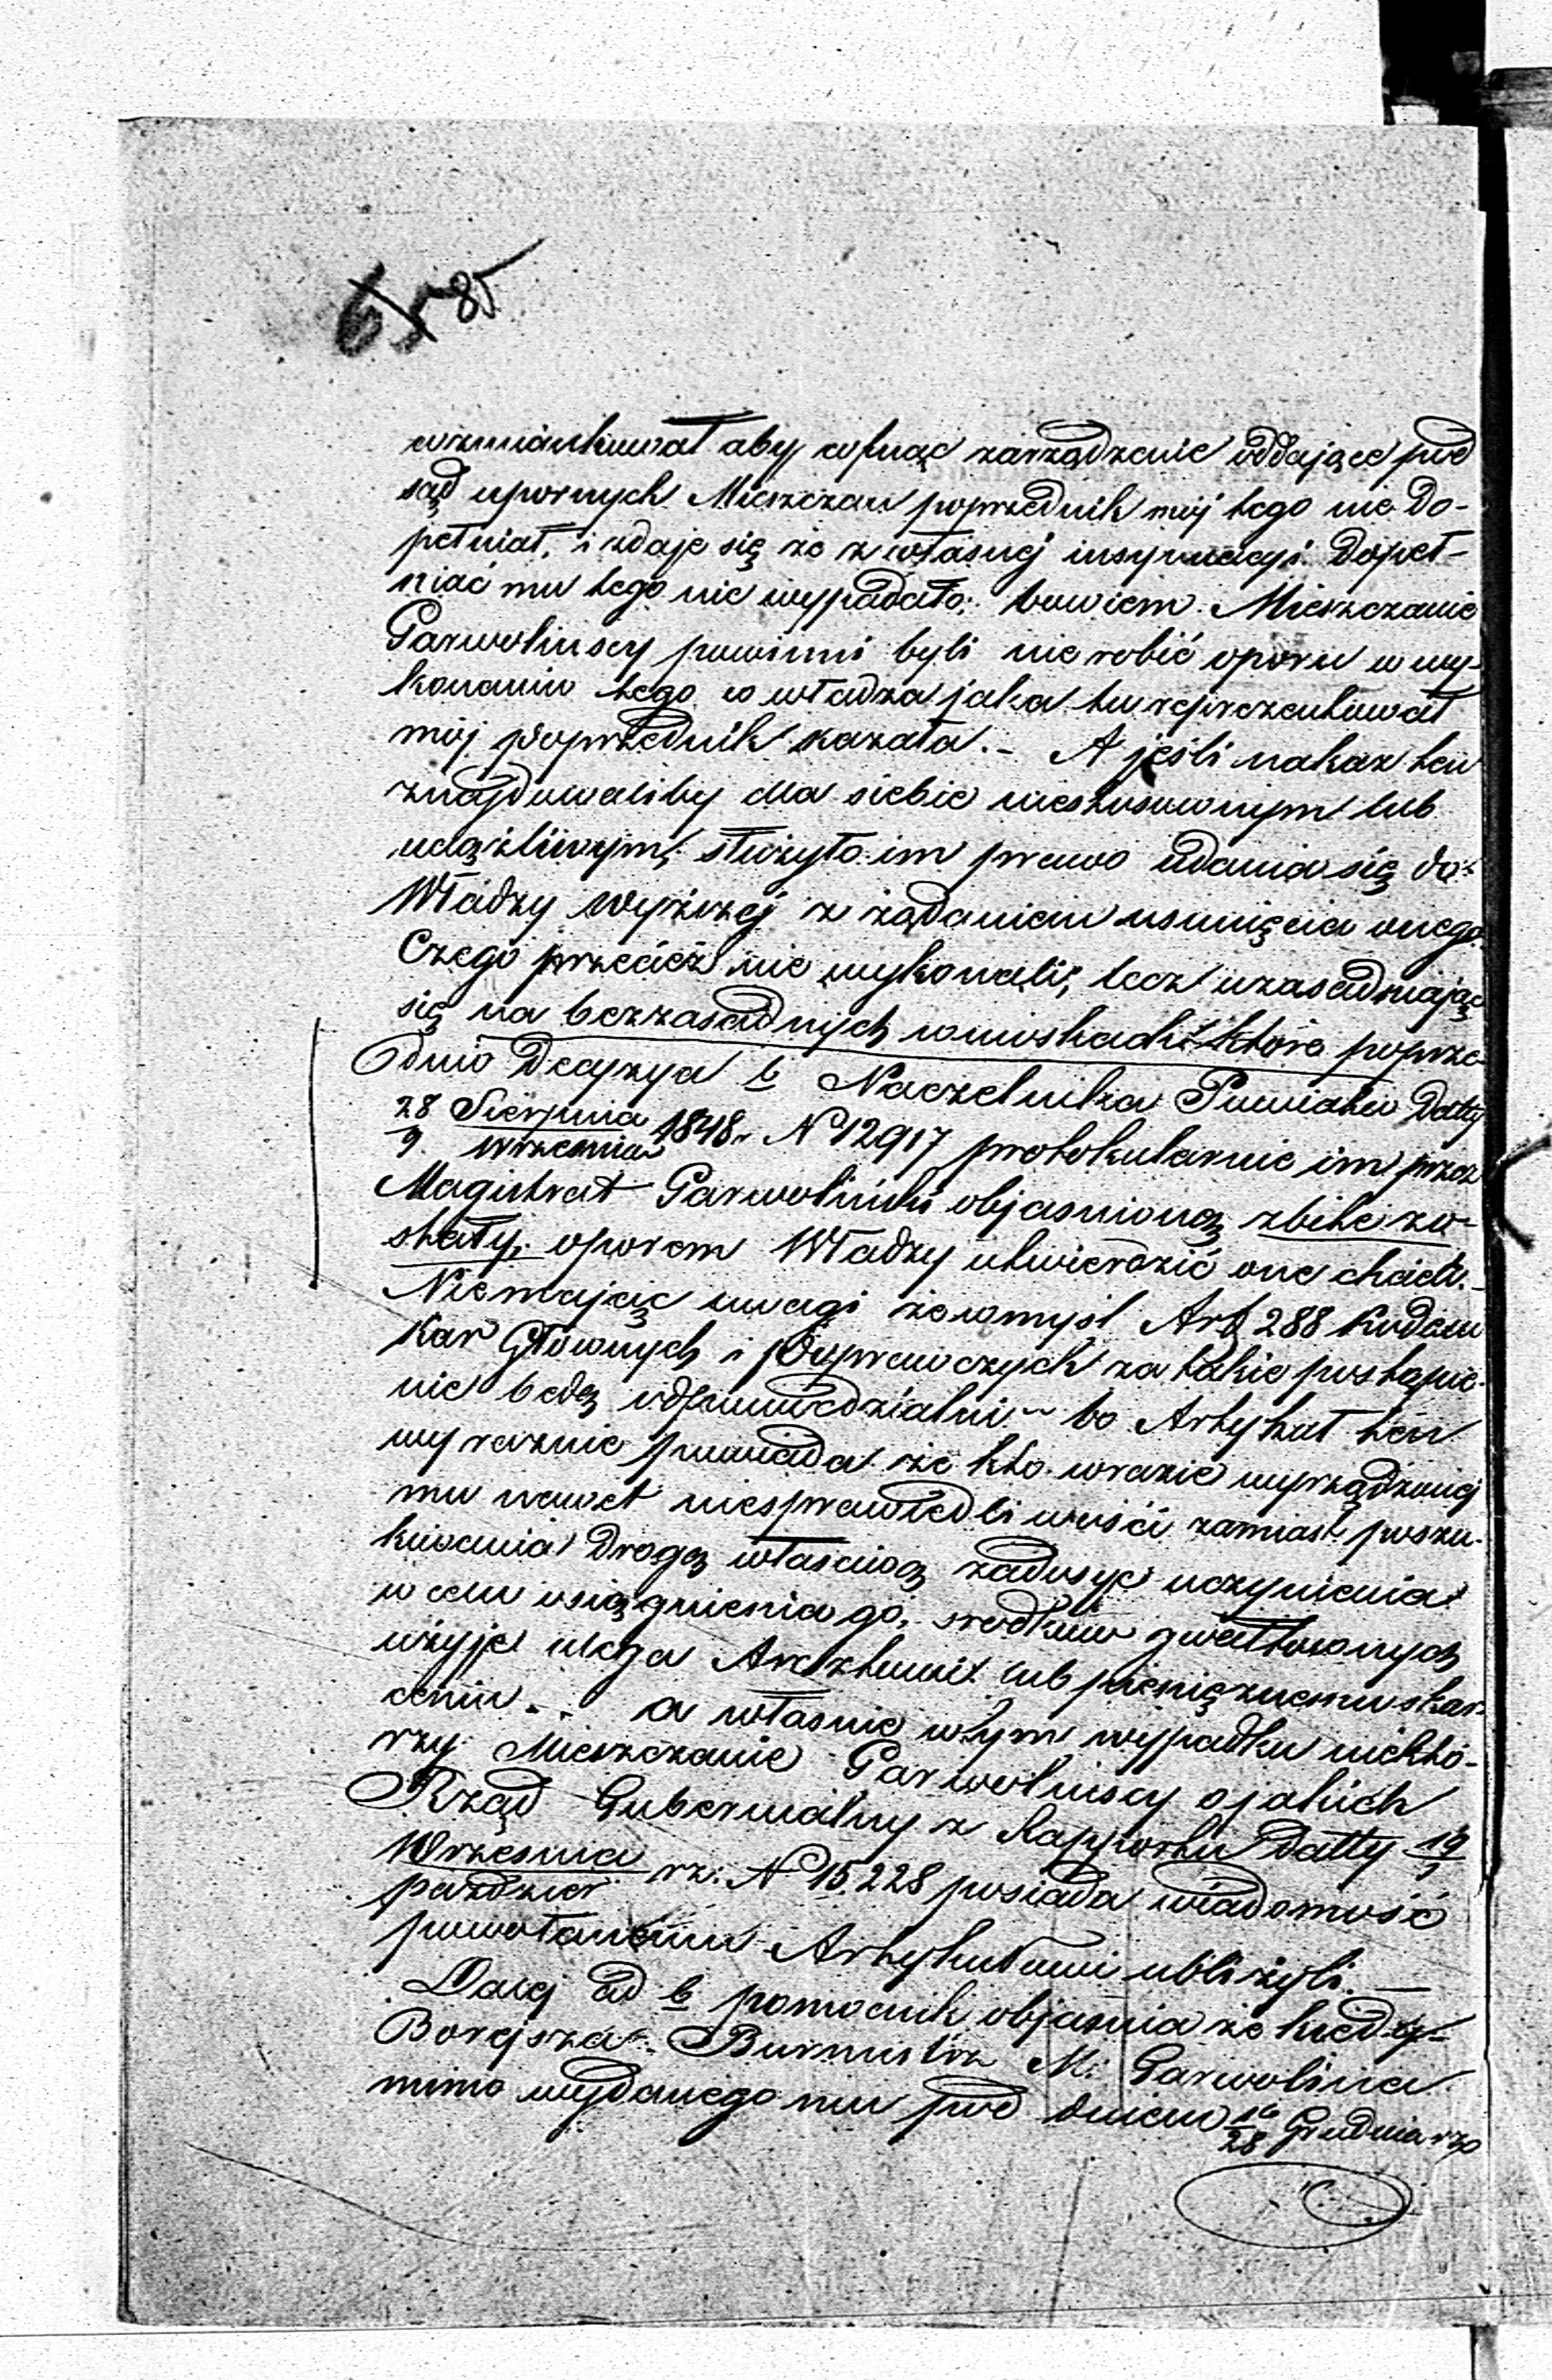 585
wzmiankował aby cofnąć zarządzenie oddające pod
sąd upornych Mieszczan poprzednik mój tego nie do-
pełniał, i zdaje się że z własnej insynuacyi dopeł-
niać mu tego nie wypadało: bowiem Mieszczanie
Garwolinscy powinni byli nie robić oporu w wy-
konaniu tego co władza jaka tu reprezentował
mój poprzednik kazała. – A jeśli nakaz ten
znajdowaliby dla siebie niestosownym lub
uciążliwym, służyło im prawo udania się do
Władzy wyższej z żądaniem usunięcia onego
Czego przecież nie wykonali, lecz uzasadniając
się na bezzasadnych wnioskach które poprze-
dnio Decyzya b Naczelnika Powiatu Datty
28 Sierpnia
9. Września 1848 r. N 12917 protokularnie im przez
Magistrat Garwoliński objasnioną zbite zo-
stały, oporem Władzy utwierdzić one chcieli. –
Niemając uwagi że w mysl Art 288 Kodexu
Kar Głównych i Poprawczych za takie postąpie-
nie będą odpowiedzialni – bo Artykuł ten
wyraznie powiada że kto w razie wyrządzonej
mu nawet niesprawiedliwości zamiast poszu-
kiwania drogą własciwą zadosyć uczynienia
w celu osiągnienia go, srodków gwałtownych
użyje ulega Aresztowi lub pieniężnemu skar-
ceniu. – a własnie w tym wypadku niektó-
rzy Mieszczanie Garwolinscy o jakich
Rząd Gubernialny z Rapportu Datty 19
Września
pazdzier rz. N 15,228 posiada wiadomość
powołanemu Artykułowi ubliżyli. –
Dalej ad b pomocnik objasnia że kiedy
Borejsza Burmistrz M: Garwolina
mimo wydanego mu pod dniem 16/28 Grudnia rz